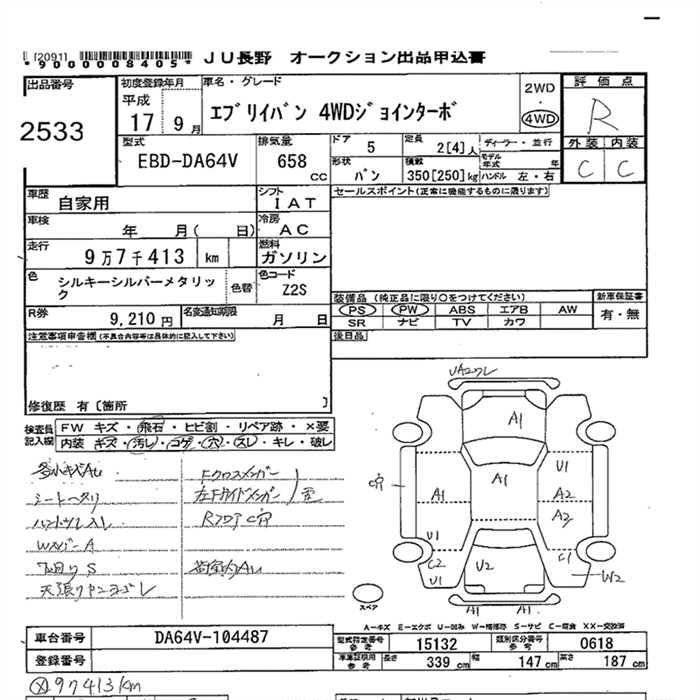 [2091]
*9000008405*
JU長野 オークション出品申込書
出品番号
2533
初度登録年月
平成
17 9月
車名・グレード
エブリイバン 4WDジョインターボ
2WD
・
4WD
評価点
R
外装 内装
C C
型式
EBD-DA64V
排気量
658
cc
ドア
5
定員
2[4]人
ディーラー・並行
形状
バン
積数
350[250]kg
モデル
年式 年
ハンドル 左・右
車歴
自家用
シフト
IAT
セールスポイント(正常に機能するものに限ります)
車検
年 月( 日)
冷房
AC
走行
9万7千413 km
燃料
ガソリン
色
シルキーシルバーメタリック
色替
色コード
Z2S
装備品 (純正品に限り○をつけてください)
新車保証書
PS PW ABS エアB AW
SR ナビ TV カワ
有・無
後日品
R券
9,210円
名変通知期限
月 日
注意事項申告欄(不具合内容等は具体的に記入して下さい)
修復歴 有〔箇所 〕
検査員
記入欄
FW キズ・飛石・ヒビ割・リペア跡・×要
内装 キズ・汚レ・コゲ・穴・スレ・キレ・破レ
Fクロスメンバー
シートヘタリ
WスパーA
下回りS
天張リヤンヨゴレ
荷室内AU
A1
A1
U1
A1
A2
A2
U1
C2
U1
U2
C1
W2
A1 A1
スペア
A-キズ E-エクボ U-凹み W-補修跡 S-サビ C-腐食 XX-交換済
車台番号
DA64V-104487
登録番号
型式指定番号
参考
15132
類別区分番号
参考
0618
車庫証明用
参考
長さ
339 cm
幅
147 cm
高さ
187 cm
97413km